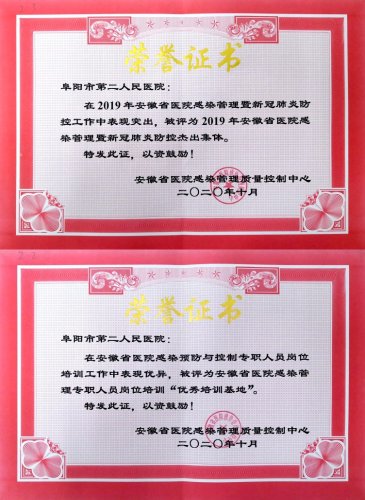 荣誉证书
阜阳市第二人民医院：
在2019年安徽省医院感染管理暨新冠肺炎防
控工作中表现突出，被评为2019年安徽省医院感
染管理暨新冠肺炎防控杰出集体。
特发此证，以资鼓励！
安徽省医院感染管理质量控制中心
二〇二〇年十月
荣誉证书
阜阳市第二人民医院：
在安徽省医院感染预防与控制专职人员岗位
培训工作中表现优异，被评为安徽省医院感染管
理专职人员岗位培训“优秀培训基地”。
特发此证，以资鼓励！
安徽省医院感染管理质量控制中心
二〇二〇年十月